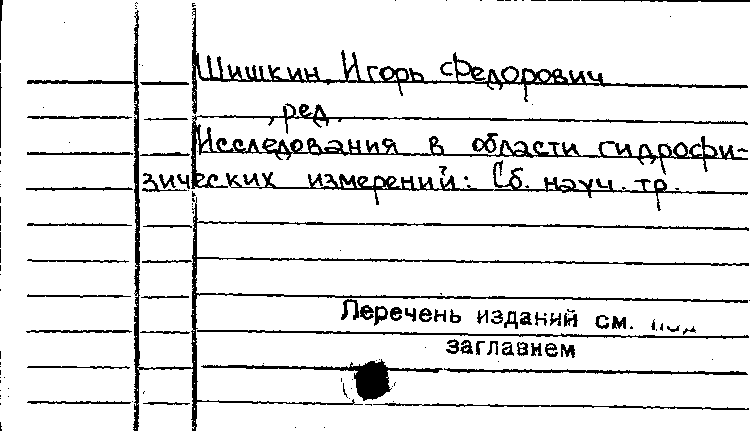 Шишкин, Игорь Федорович
, ред.
Исследования в области гидрофи-
зических измерений: Сб. науч. тр.
Перечень изданий см. под
заглавием